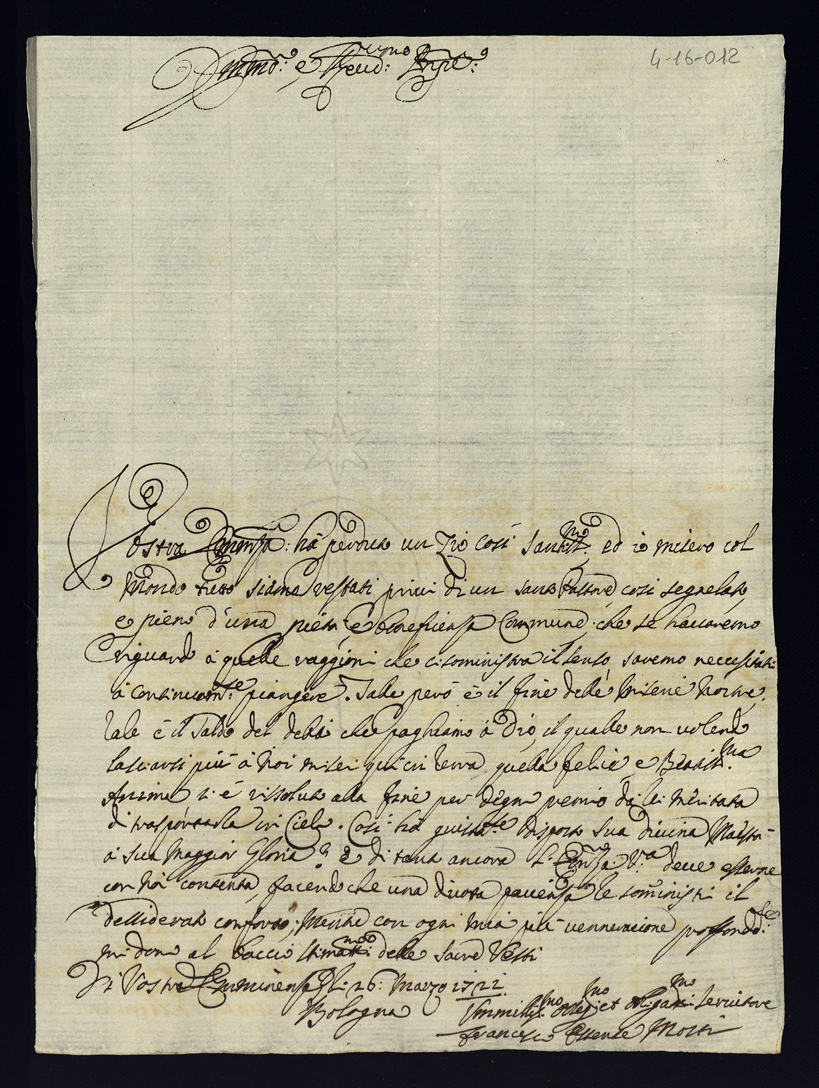 4-16-012
Emmo: e Reud:
Vostra Eminza: há perduto un Zio così Santiss:mo ed io misero col
Mondo tutto siamo restati privi di un santo Pastore, così segnalato,
e pieno d'una pietà, e beneficenza Commune: che se haveremo
riguardo à quelle raggioni che ci somministra il senso, saremo necessitati
à continuam:te piangere. Tale però è il fine delle Miserie Nostre,
tale è il Saldo del debito che paghiamo à Dio, il qualle non volendo
lasciarci più à Noi miseri quì in terra, quella felice e Beatiss:ma
Anima si è rissoluto alla fine per degno premio da lei Meritato
di trasportarla in Cielo. Così ha giusta:te disposto sua divina Maestà
à sua Maggior Gloria, e di tanto ancora l'Emza: Va: deve esserne
con Noi contenta, facendo che una divota pacienza le somministri il
dessiderato conforto. Mentre con ogni mia più venneracione profond:te
mi dono al baccio stimatmo delle Sacre Vesti
Di Vostra Emminenza Li: 26: Marzo 1722
Bologna Ummiliss:mo et obligat:mo Servitore
Francesco Estense Mosti